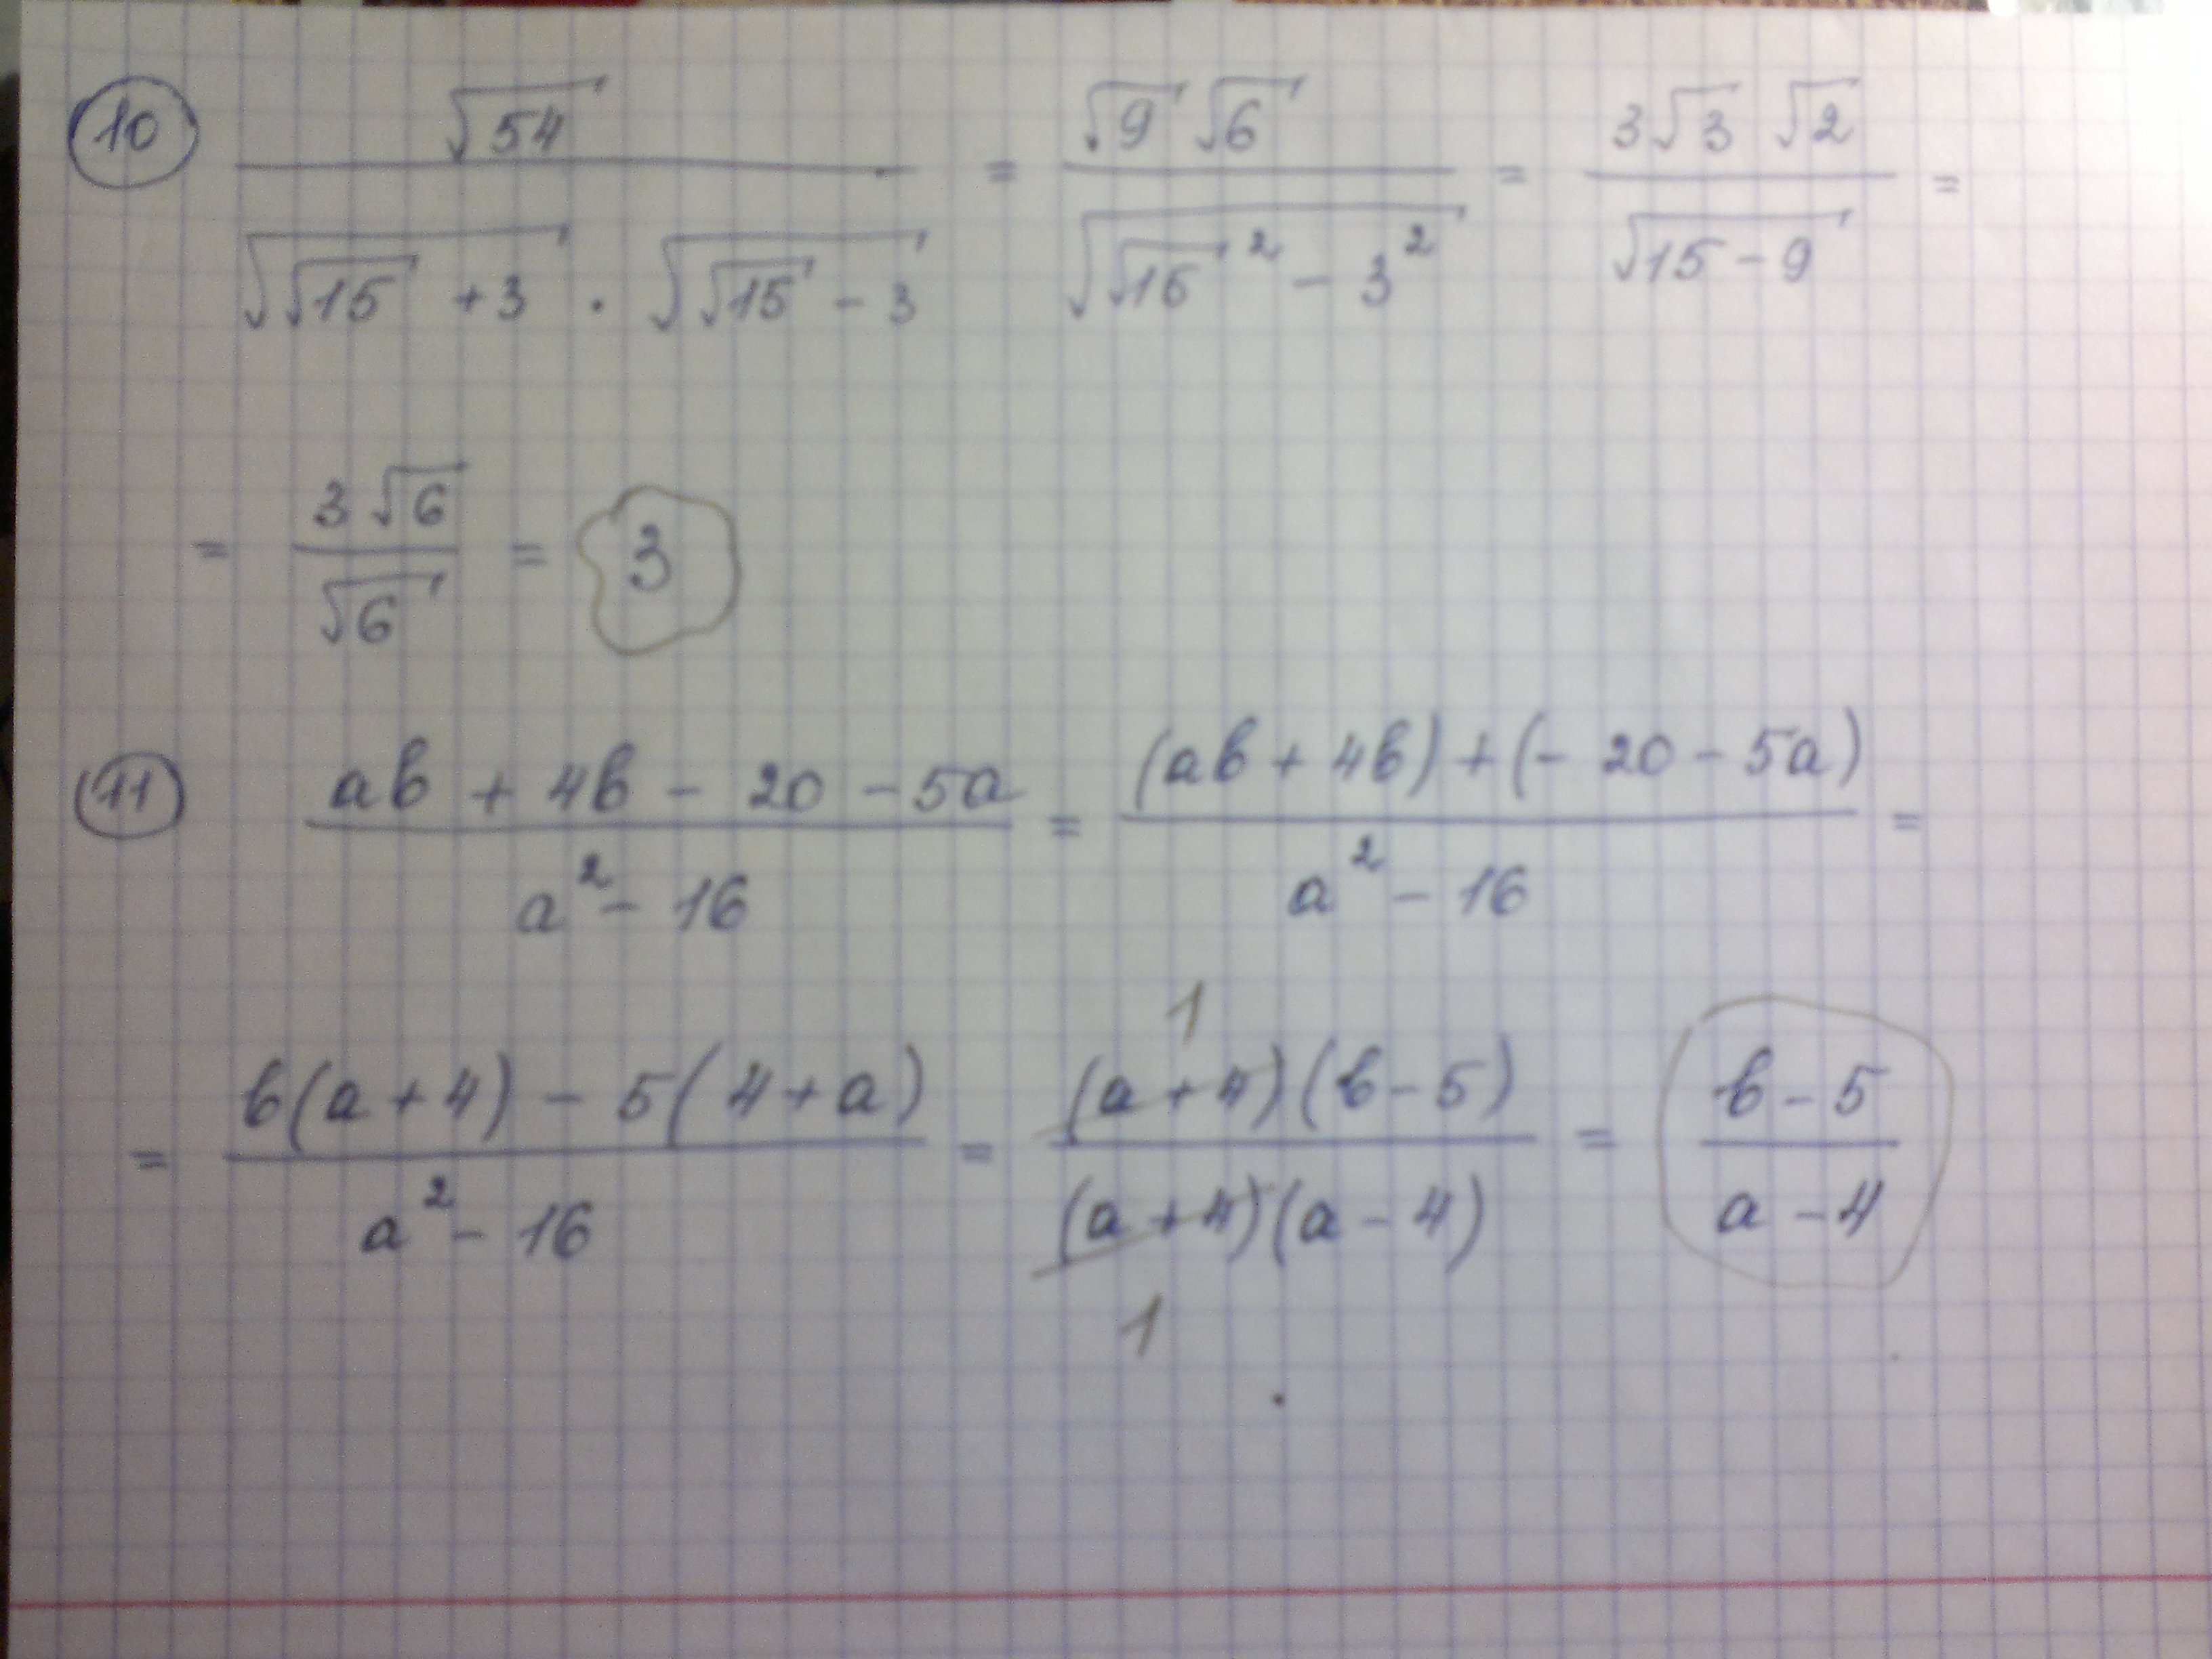 10 √54 / (√(√15 + 3) · √(√15 − 3)) = √9 √6 / √(√15² − 3²) = 3√3 √2 / √(15 − 9) =
= 3√6 / √6 = 3
11 (ab + 4b − 20 − 5a) / (a² − 16) = ((ab + 4b) + (− 20 − 5a)) / (a² − 16) =
1
= (b(a + 4) − 5(4 + a)) / (a² − 16) = (a + 4)(b − 5) / (a + 4)(a − 4) = (b − 5) / (a − 4)
1